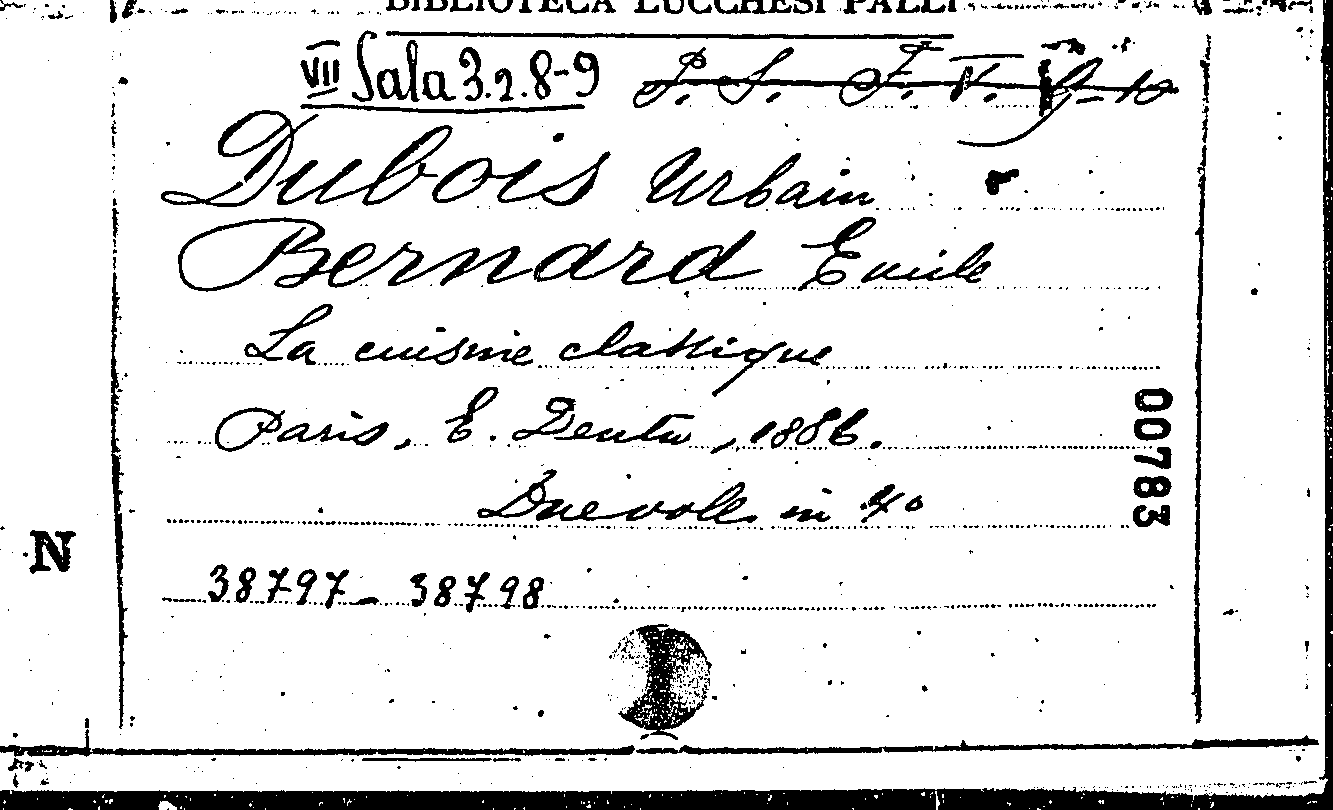 BIBLIOTECA LUCCHESI PALLI
VII Sala 3.2.8-9 P. S. F. V. 9-10
Dubois Urbain
Bernard Emile
La cuisine classique
Paris, E. Dentu, 1886.
Due voll. in 4°
38797-38798
00783
N